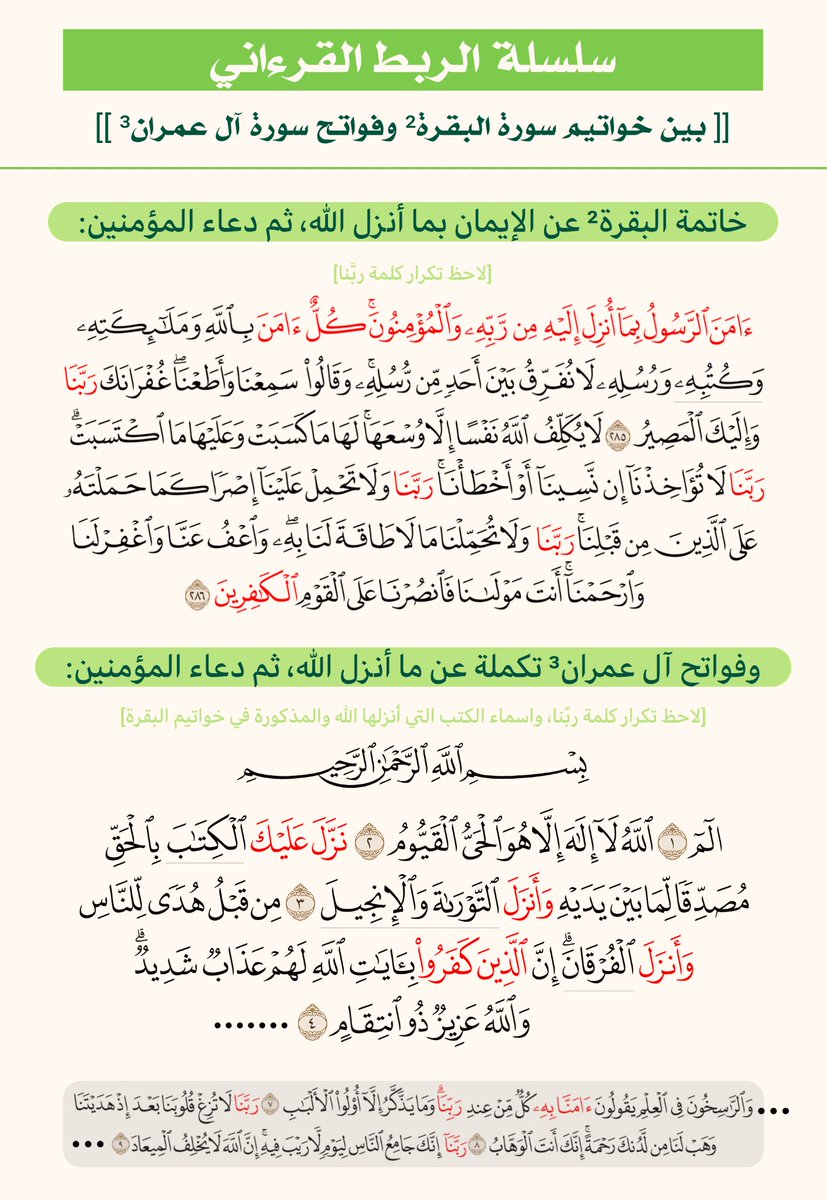 سلسلة الربط القرءاني
[[ بين خواتيم سورة البقرة² وفواتح سورة آل عمران³ ]]
خاتمة البقرة² عن الإيمان بما أنزل الله، ثم دعاء المؤمنين:
[لاحظ تكرار كلمة ربَّنا]
ءَامَنَ ٱلرَّسُولُ بِمَآ أُنزِلَ إِلَيْهِ مِن رَّبِّهِۦ وَٱلْمُؤْمِنُونَ ۚ كُلٌّ ءَامَنَ بِٱللَّهِ وَمَلَـٰٓئِكَتِهِۦ
وَكُتُبِهِۦ وَرُسُلِهِۦ لَا نُفَرِّقُ بَيْنَ أَحَدٍ مِّن رُّسُلِهِۦ ۚ وَقَالُوا۟ سَمِعْنَا وَأَطَعْنَا ۖ غُفْرَانَكَ رَبَّنَا
وَإِلَيْكَ ٱلْمَصِيرُ ٢٨٥ لَا يُكَلِّفُ ٱللَّهُ نَفْسًا إِلَّا وُسْعَهَا ۚ لَهَا مَا كَسَبَتْ وَعَلَيْهَا مَا ٱكْتَسَبَتْ ۗ
رَبَّنَا لَا تُؤَاخِذْنَآ إِن نَّسِينَآ أَوْ أَخْطَأْنَا ۚ رَبَّنَا وَلَا تَحْمِلْ عَلَيْنَآ إِصْرًا كَمَا حَمَلْتَهُۥ
عَلَى ٱلَّذِينَ مِن قَبْلِنَا ۚ رَبَّنَا وَلَا تُحَمِّلْنَا مَا لَا طَاقَةَ لَنَا بِهِۦ ۖ وَٱعْفُ عَنَّا وَٱغْفِرْ لَنَا
وَٱرْحَمْنَآ ۚ أَنتَ مَوْلَىٰنَا فَٱنصُرْنَا عَلَى ٱلْقَوْمِ ٱلْكَـٰفِرِينَ ٢٨٦
وفواتح آل عمران³ تكملة عن ما أنزل الله، ثم دعاء المؤمنين:
[لاحظ تكرار كلمة ربّنا، واسماء الكتب التي أنزلها الله والمذكورة في خواتيم البقرة]
بِسْمِ ٱللَّهِ ٱلرَّحْمَـٰنِ ٱلرَّحِيمِ
الٓمٓ ١ ٱللَّهُ لَآ إِلَـٰهَ إِلَّا هُوَ ٱلْحَىُّ ٱلْقَيُّومُ ٢ نَزَّلَ عَلَيْكَ ٱلْكِتَـٰبَ بِٱلْحَقِّ
مُصَدِّقًا لِّمَا بَيْنَ يَدَيْهِ وَأَنزَلَ ٱلتَّوْرَىٰةَ وَٱلْإِنجِيلَ ٣ مِن قَبْلُ هُدًى لِّلنَّاسِ
وَأَنزَلَ ٱلْفُرْقَانَ ۗ إِنَّ ٱلَّذِينَ كَفَرُوا۟ بِـَٔايَـٰتِ ٱللَّهِ لَهُمْ عَذَابٌ شَدِيدٌ ۗ
وَٱللَّهُ عَزِيزٌ ذُو ٱنتِقَامٍ ٤ .......
... وَٱلرَّٰسِخُونَ فِى ٱلْعِلْمِ يَقُولُونَ ءَامَنَّا بِهِۦ كُلٌّ مِّنْ عِندِ رَبِّنَا ۗ وَمَا يَذَّكَّرُ إِلَّآ أُو۟لُوا۟ ٱلْأَلْبَـٰبِ ٧ رَبَّنَا لَا تُزِغْ قُلُوبَنَا بَعْدَ إِذْ هَدَيْتَنَا
وَهَبْ لَنَا مِن لَّدُنكَ رَحْمَةً ۚ إِنَّكَ أَنتَ ٱلْوَهَّابُ ٨ رَبَّنَآ إِنَّكَ جَامِعُ ٱلنَّاسِ لِيَوْمٍ لَّا رَيْبَ فِيهِ ۚ إِنَّ ٱللَّهَ لَا يُخْلِفُ ٱلْمِيعَادَ ٩ ...